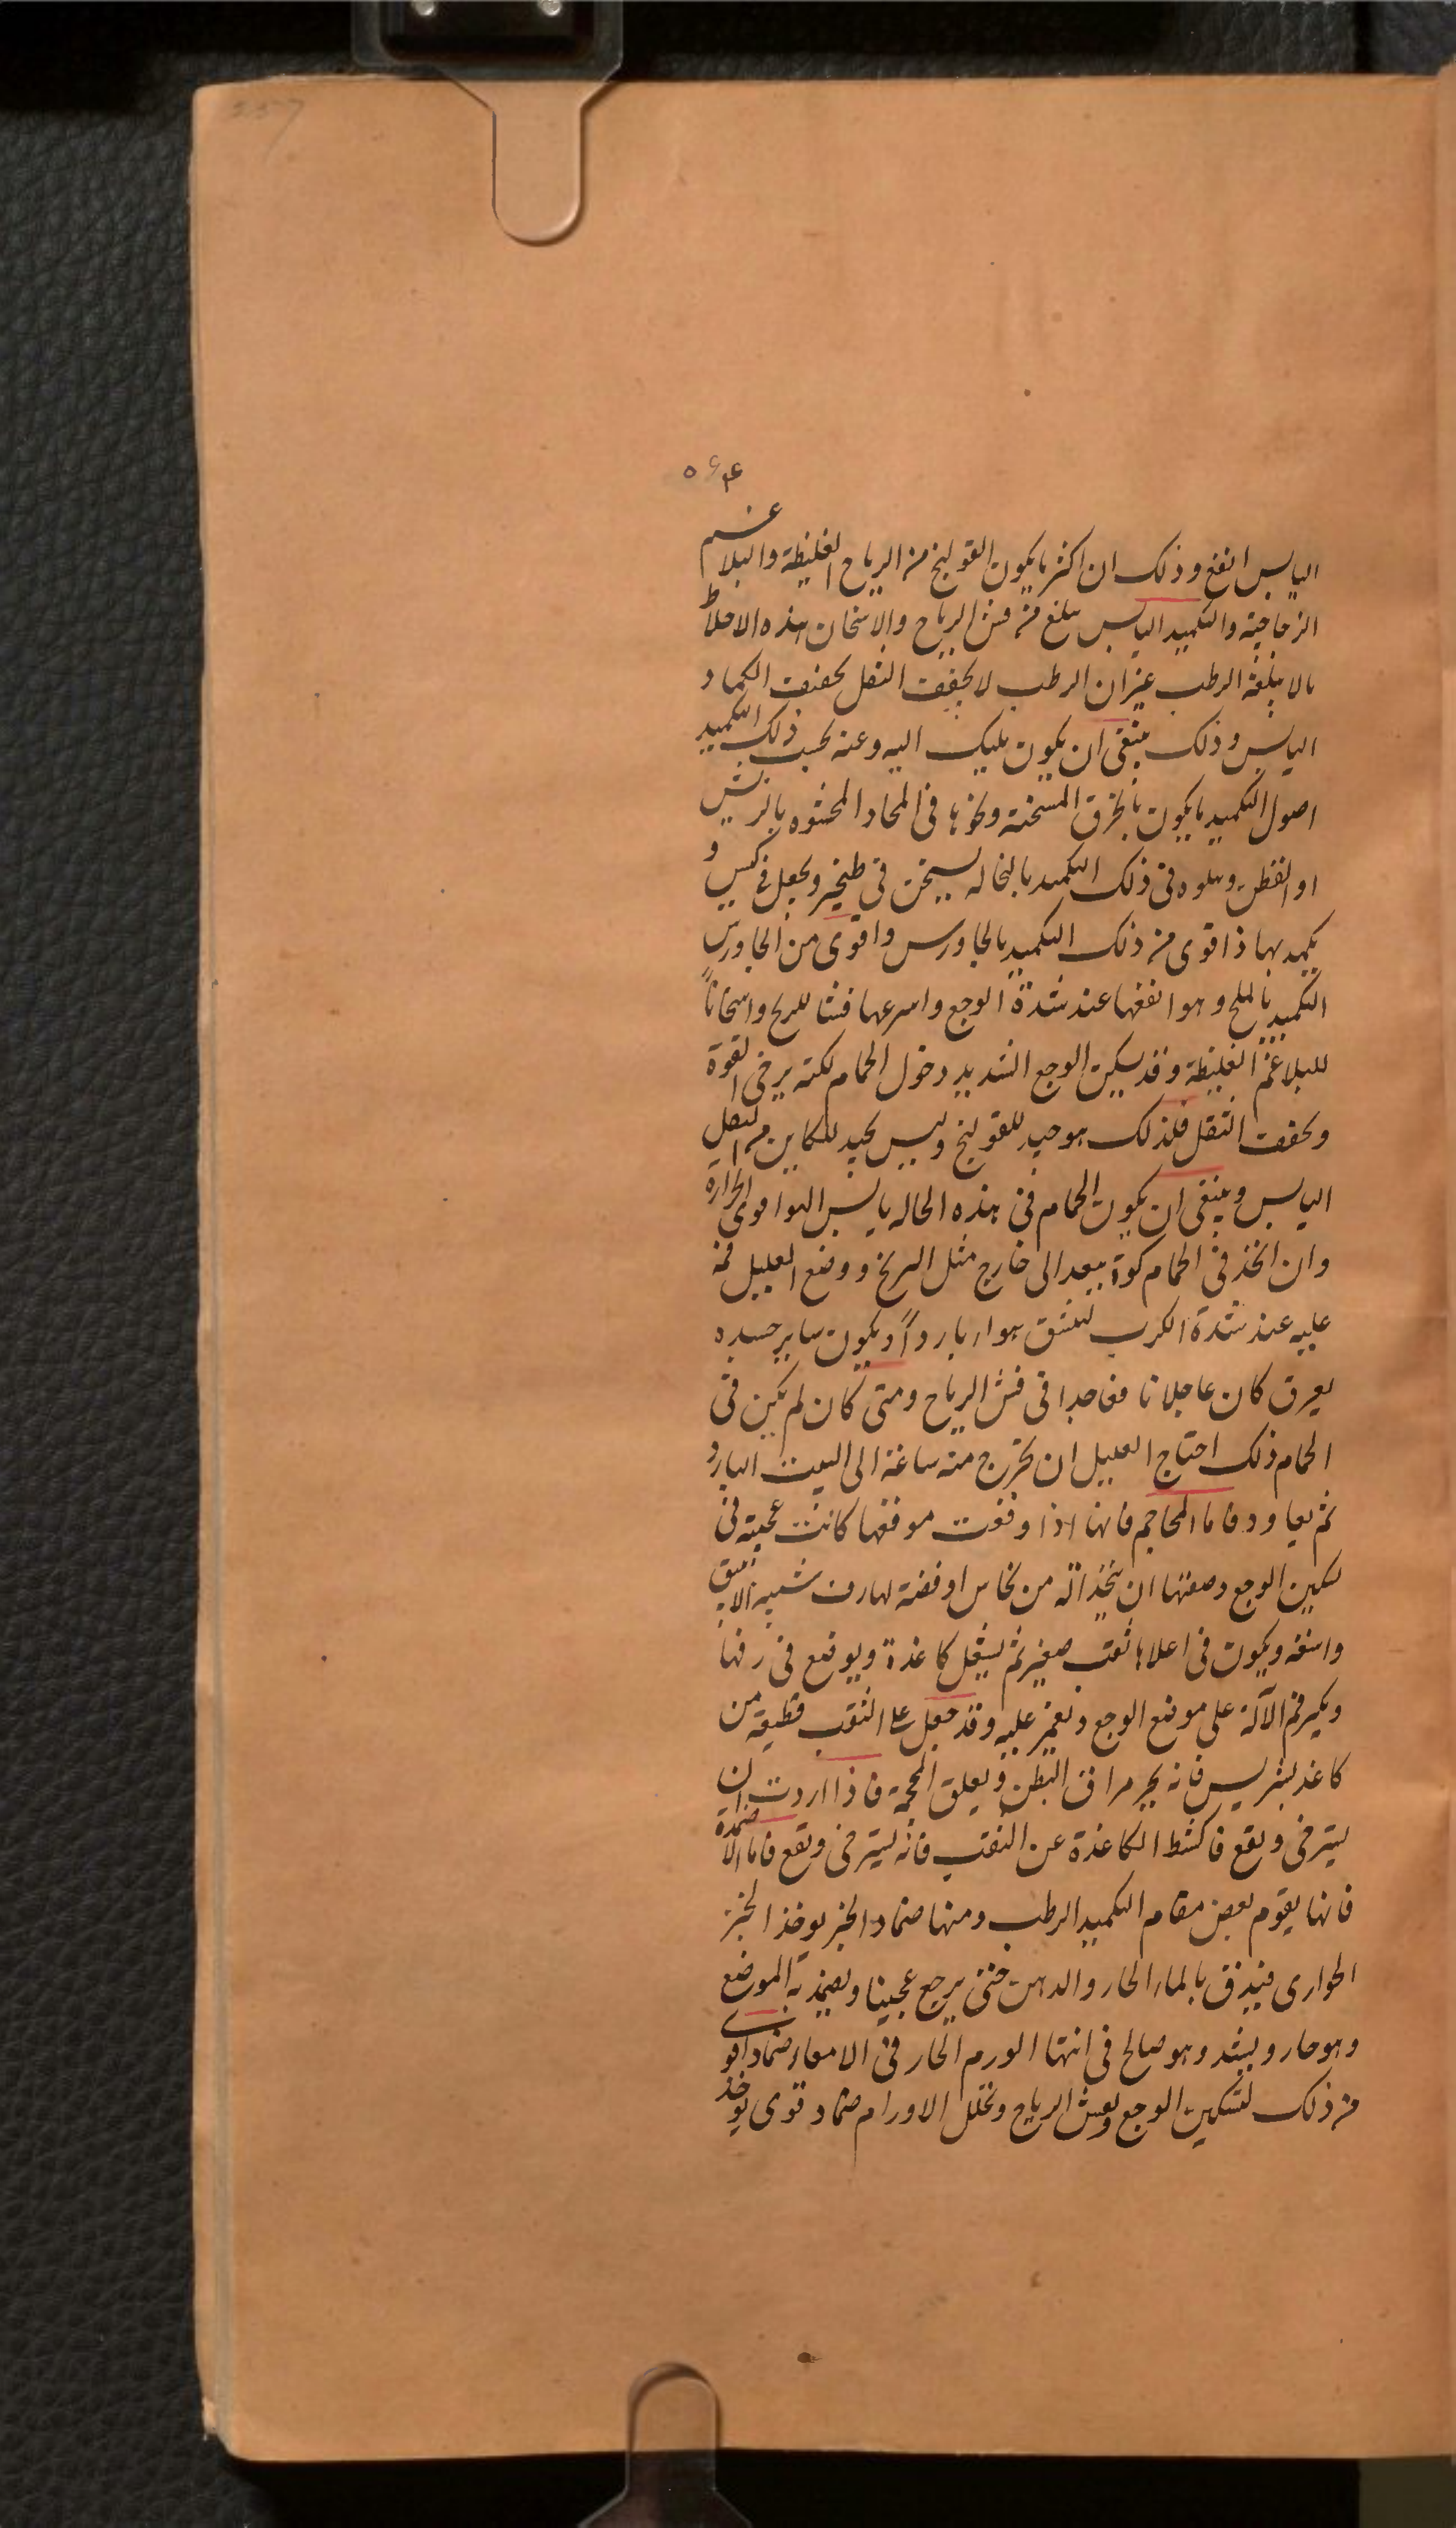 ۵۶۴
اليابس انفع وذلك ان اكثر ما يكون القولنج من الرياح الغليظة والبلاغم
الزجاجية والتكميد اليابس يبلغ من فش الرياح والاسخان لهذه الاخلاط
ما لا يبلغه الرطب غير ان الرطب لا يجفف الثفل كجفف الكماد
اليابس وذلك ينبغي ان يكون ميلك اليه وعنه بحسب ذلك التكميد
اصول التكميد ما يكون بالخرق المسخنة ونحوها في المخاد المحشوه بالريش
او القطن ويتلوه في ذلك التكميد بالنخاله يسخن في طنجير ويجعل في كيس و
يكمد بها ذا قوى من ذلك التكميد بالجاورس واقوى من الجاورس
التكميد بالملح وهو انفعها عند شدة الوجع واسرعها فشا للريح واسخاناً
للبلاغم الغليظة وقد يسكن الوجع الشديد دخول الحمام لكنه يرخى القوة
ويجفف الثفل فلذلك هو جيد للقولنج وليس بجيد للكاين من الثفل
اليابس وينبغى ان يكون الحمام في هذه الحاله يابس الهوا قوى الحرارة
وان اتخذ في الحمام كوة ينفد الى خارج مثل البربخ ووضع العليل فمه
عليه عند شدة الكرب لينشق هواء بارداً ويكون ساير جسده
يعرق كان عاجلا نافعا جدا في فش الرياح ومتى كان لم يكن في
الحمام ذلك احتاج العليل ان يخرج منه ساعة الى البيت البارد
ثم يعاود فاما المحاجم فانها اذا وقعت موقعها كانت عجيبة في
تسكين الوجع وصفتها ان يتخذ آلة من نحاس او فضة لها رف شبيه الانبيق
واسعه ويكون في اعلاها ثقب صغير ثم يشعل كاغذة ويوضع في رفها
ويكبر فم الآلة على موضع الوجع ويغمز عليه وقد جعل على الثقب قطيعة من
كاغذ بشريس فانه يجر مراق البطن ويعلق المحجمة فاذا اردت ان
يسترخى ويقع فاكشط الكاغذة عن الثقب فانه يسترخى ويقع فاما الاضمدة
فانها يقوم بعض مقام التكميد الرطب ومنها ضماد الخبز يوخذ الخبز
الحوارى فيدق بالماء الحار والدهن حتى يرجع عجينا ويضمد به الموضع
وهو حار ويشد وهو صالح في انتها الورم الحار في الامعاء ضماد اقوى
من ذلك لتسكين الوجع ويفش الرياح وتحلل الاورام ضماد قوى يوخذ